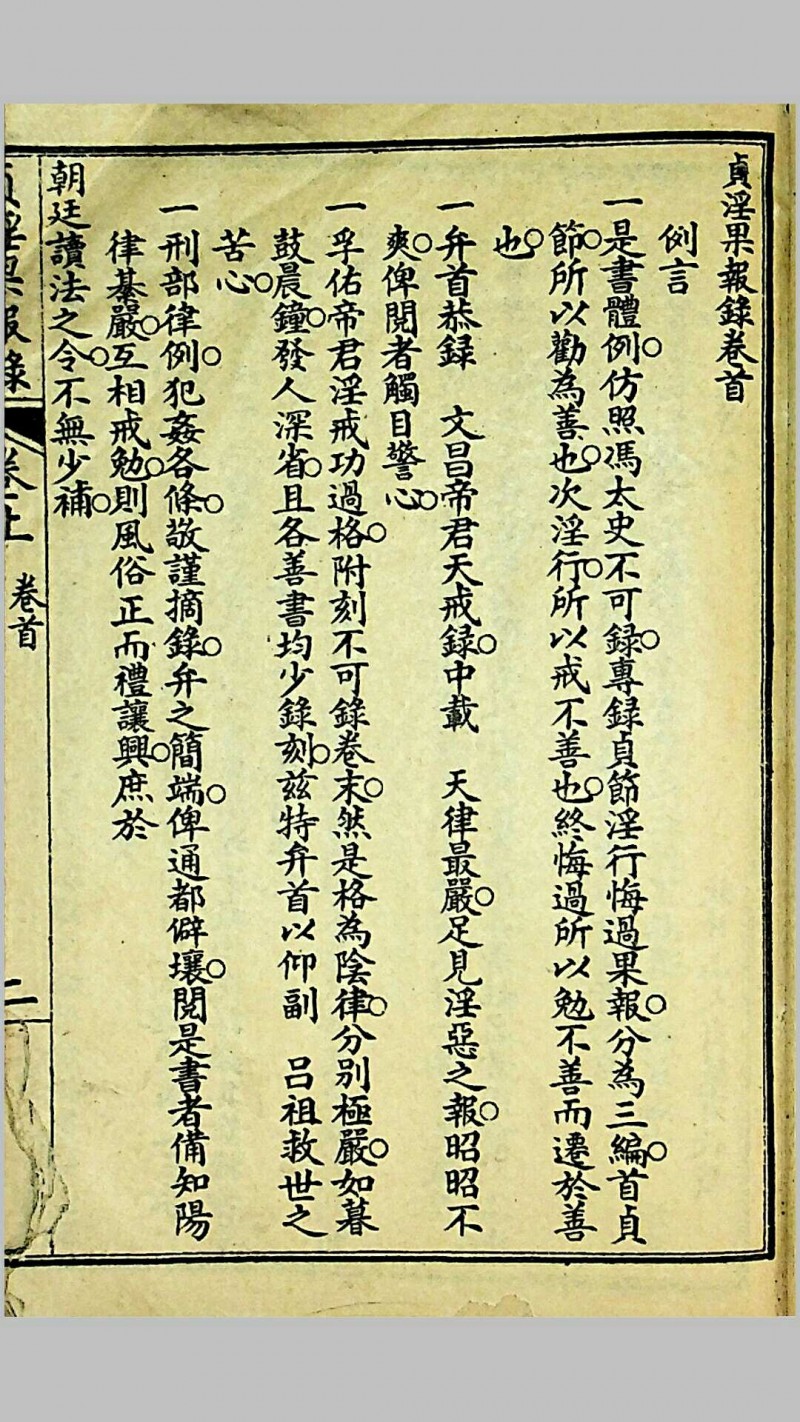 貞淫果報錄卷首
例言
一是書體例○仿照馮太史不可録○專録貞節淫行悔過果報○分為三編○首貞
節○所以勸為善也○次淫行○所以戒不善也○終悔過所以勉不善而遷於善
也○
一弁首恭録　文昌帝君天戒録○中載　天律最嚴○足見淫惡之報○昭昭不
爽○俾閱者觸目警心○
一孚佑帝君淫戒功過格○附刻不可錄卷末○然是格為陰律○分别極嚴○如暮
鼓晨鐘○發人深省○且各善書均少錄刻○兹特弁首以仰副　呂祖救世之
苦心○
一刑部律例○犯姦各條○敬謹摘錄○弁之簡端○俾通都僻壤○閱是書者備知陽
律綦嚴○互相戒勉○則風俗正而禮讓興○庶於
朝廷讀法之令○不無少補○
貞淫果報錄
卷上
卷首
二